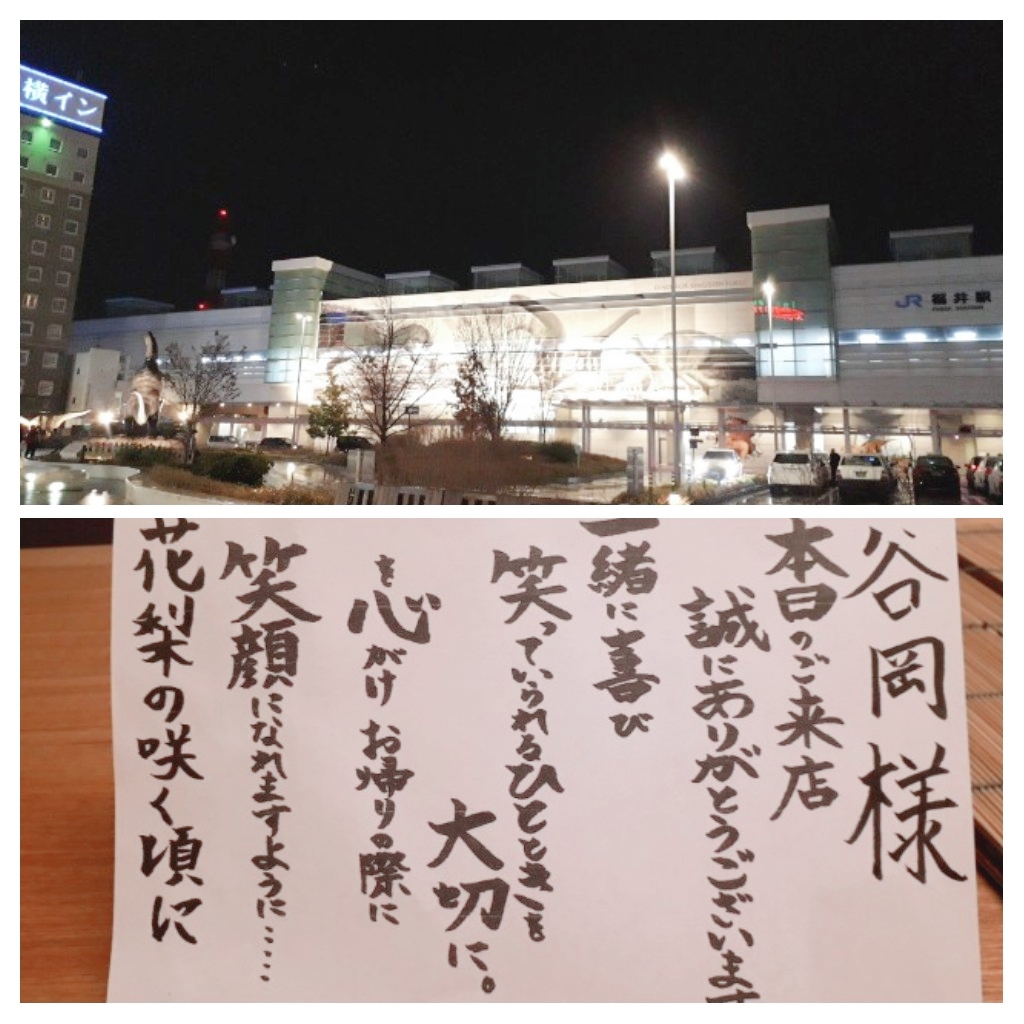 横イン
JR 福井駅
谷岡様
本日のご来店
誠にありがとうございます
一緒に喜び
笑っていられるひとときを
大切に。
を心がけ お帰りの際に
笑顔になれますように……
花梨の咲く頃に